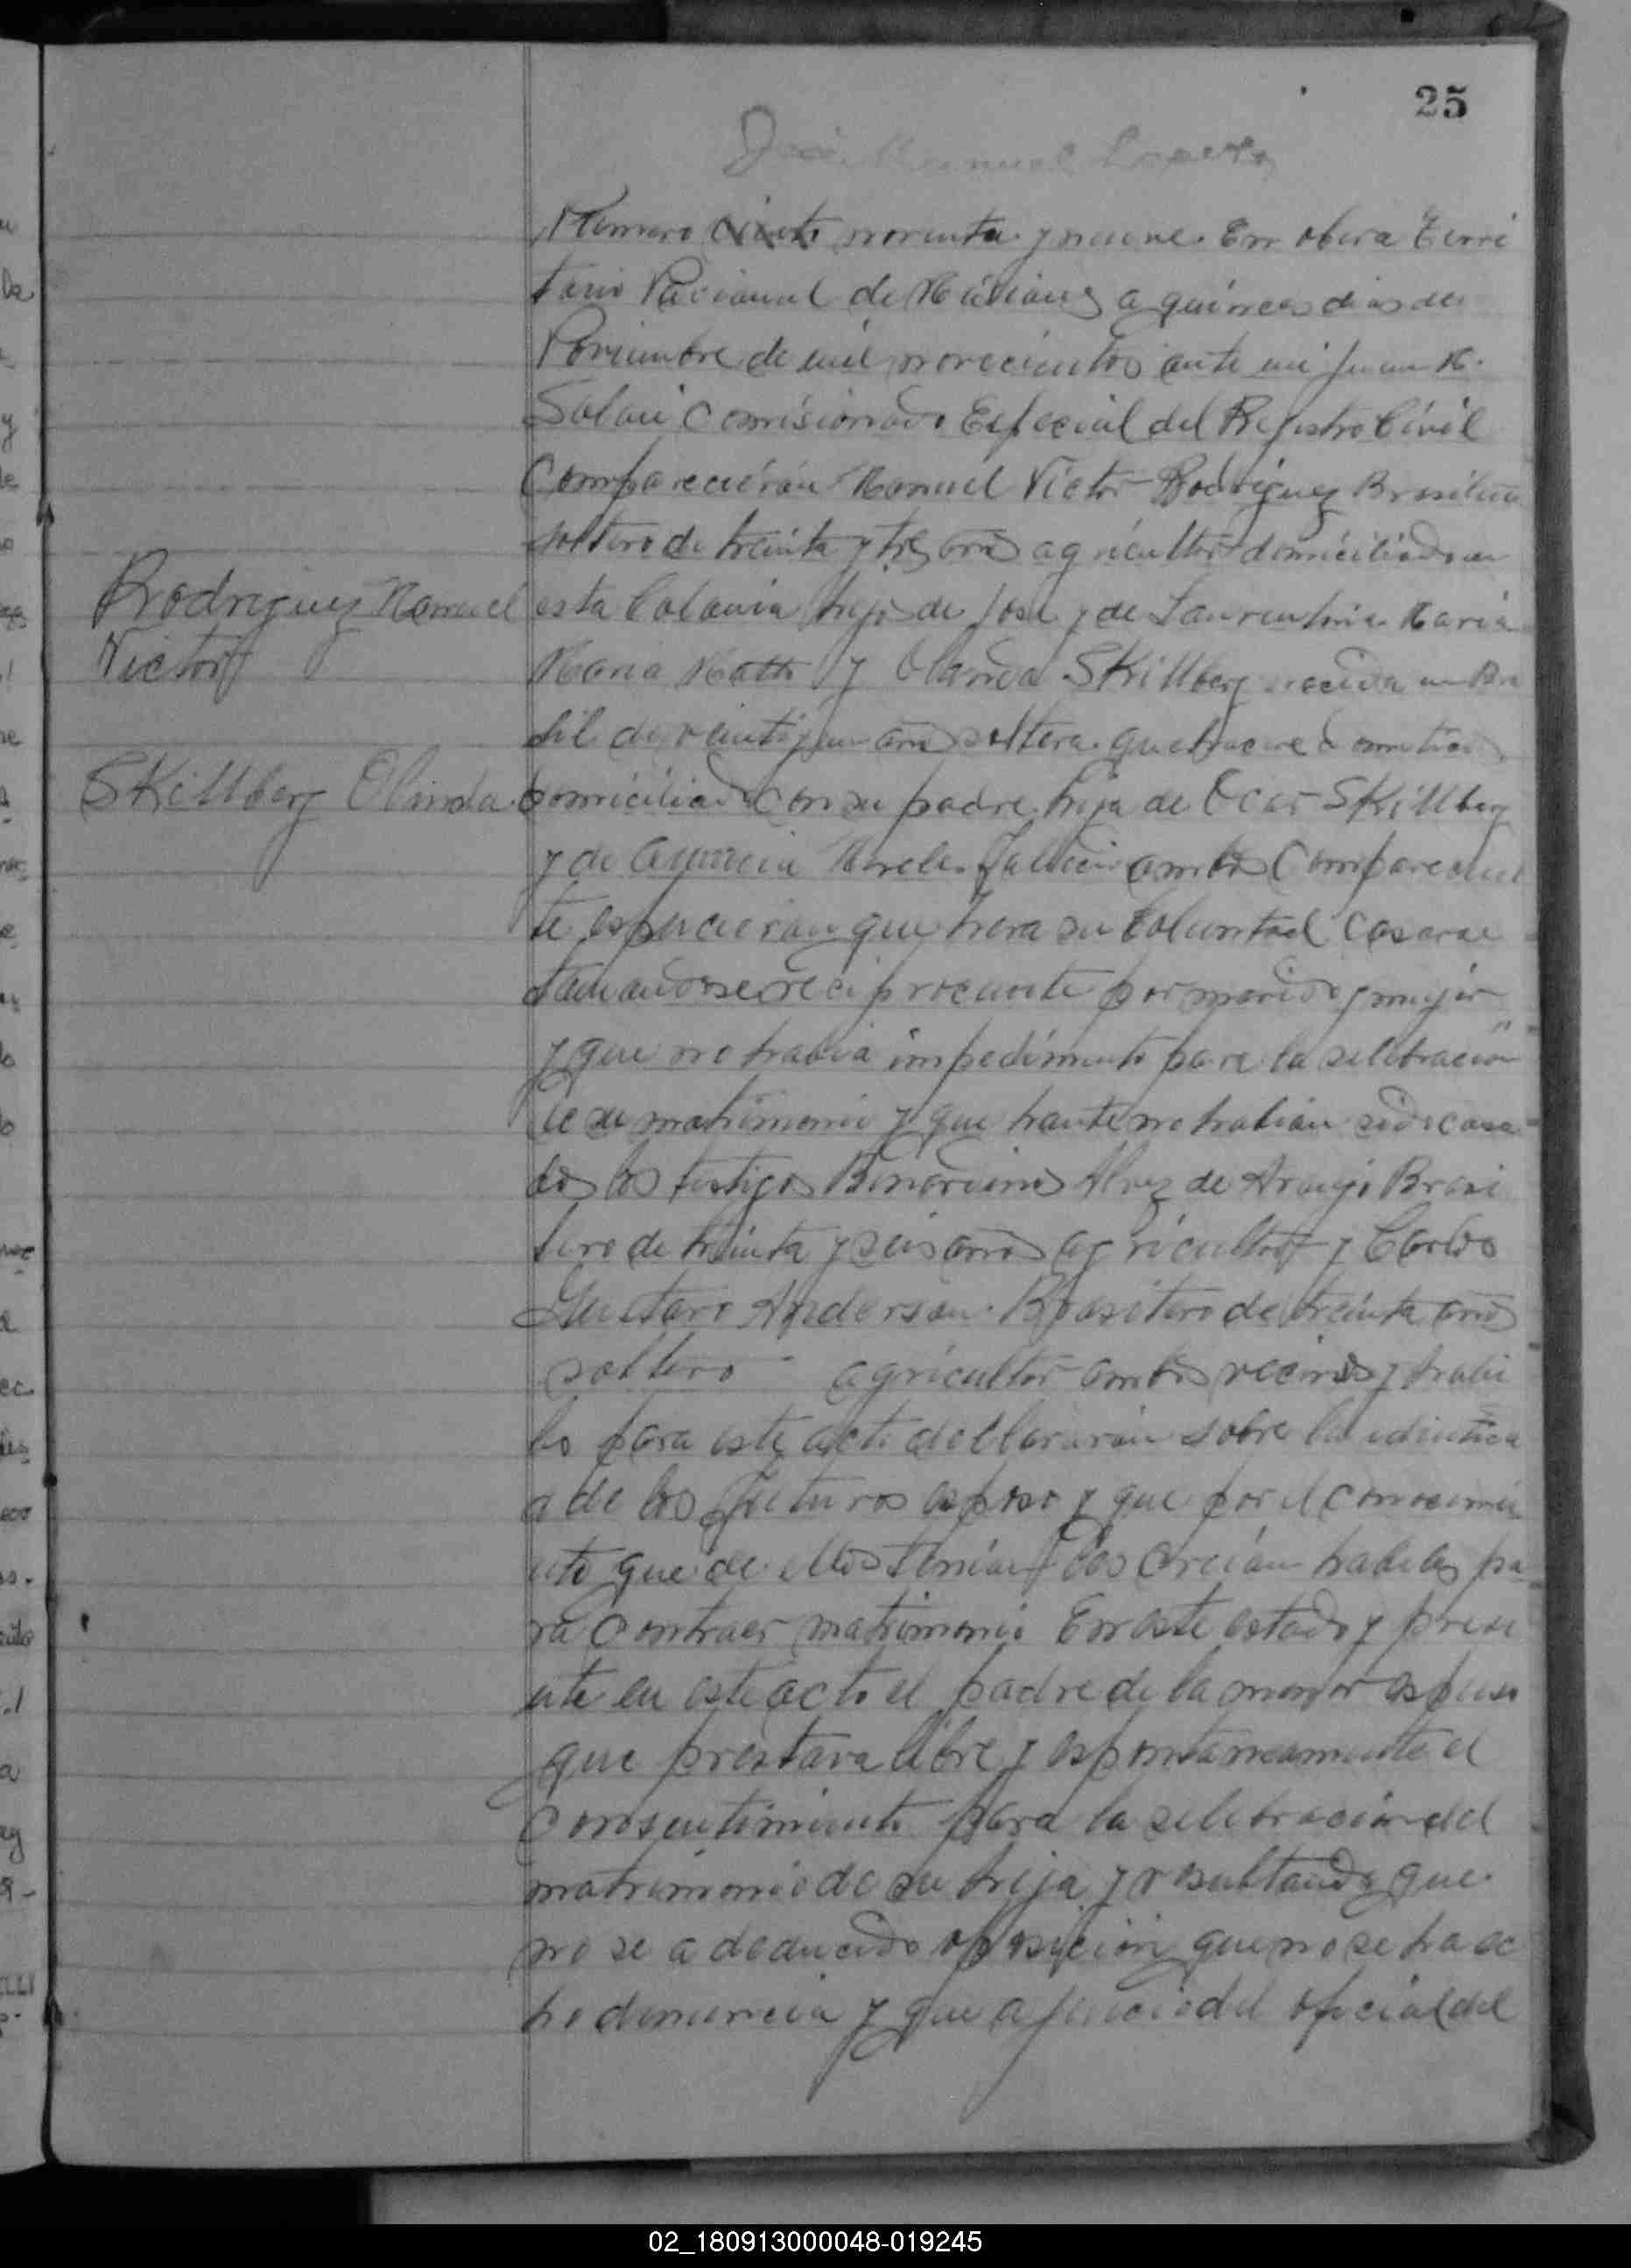 25
José Manuel
Numero ciento noventa y nueve. En obera Terri
torio Nacional de Misiones a quinces dias de
Noviembre de mil novecientos ante mi Juan M.
Comisionado Especial del Registro Civil
Comparecierán Manuel Victor Rodriguez Brasilero
soltero de treinta y tres años agricultor domiciliado en
Rodriguez Manuel
Victor
esta Colonia hijo de José y de Laurentina Maria
Maria y Olinda Skillberg nacida en Bra
sil de veintiun años soltera quehacere domestico
Skillberg Olinda
Domiciliad Con su padre hija de Ocar Skillberg
y de ambos Compareciente
te espucieran que hera su boluntad Casarse
tomandose reciprocamente por marido y mujer
y que no habia impedimento para la selebración
de su matrimonio y que hante no habian sido casa
dos los testigos Alvez de Araujo Brasi
lero de treinta y seis años agricultor y Carlos
Gustavo Anderson Brasilero de treinta años
soltero agricultor ambos vecinos y habi
les para este acto declararan sobre la identida
d de los futuros esposo y que por el conocimi
ento que de ellos tenian los creian habiles pa
ra contraer matrimonio En este estado y prese
nte en este acto el padre de la menor espuso
que prestava libre y espontaneamente el
consentimiento para la selebración del
matrimonio de su hija y resultando que
no se a deducido oposicion que no se ha ec
ho denuncia y que a juicio del oficial del
02_180913000048-019245